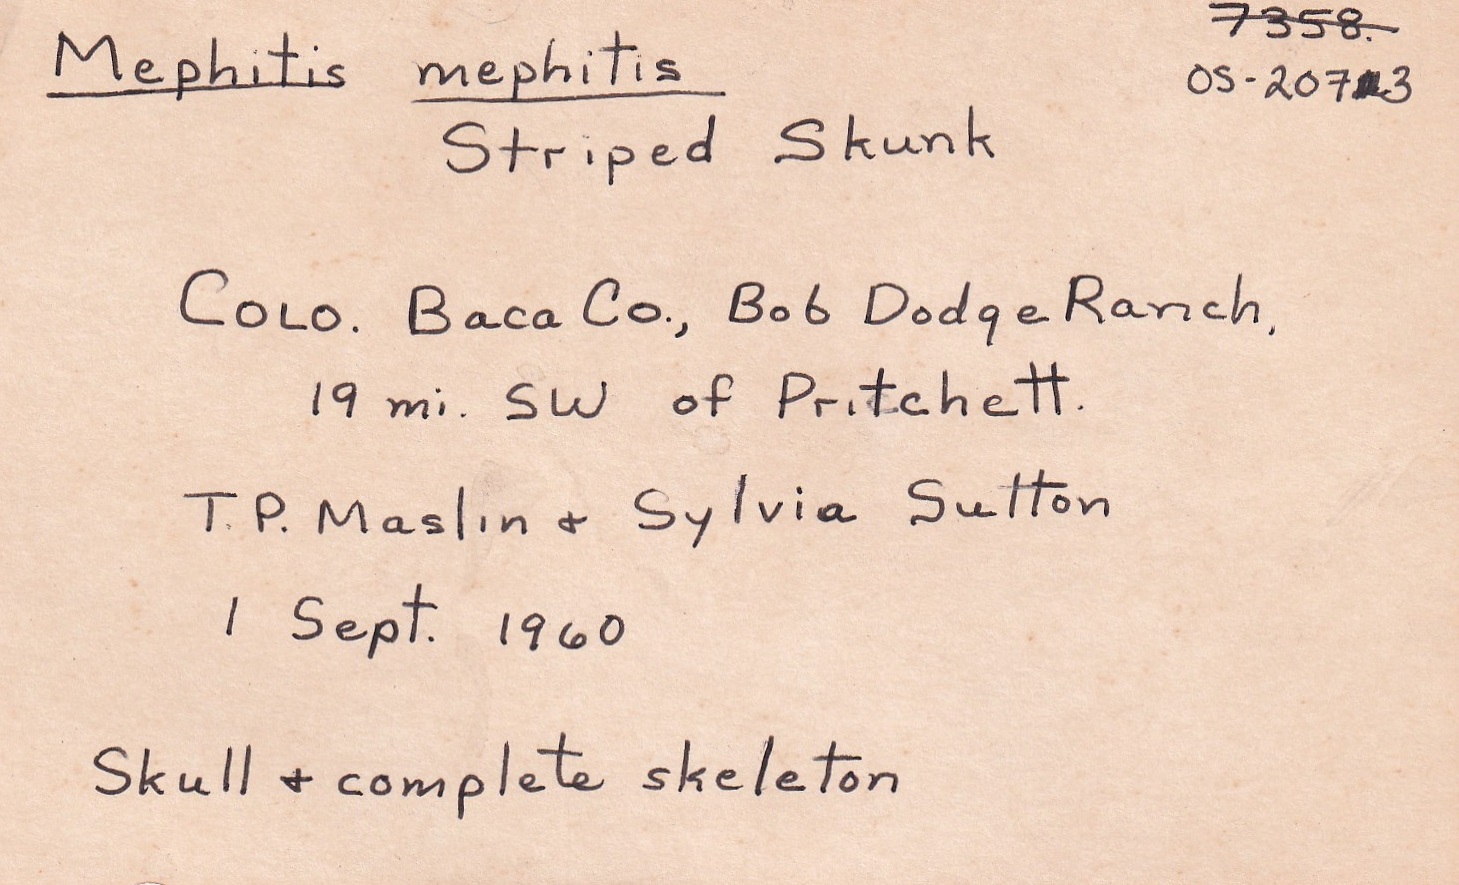 7358.
Mephitis mephitis
OS-2073
Striped Skunk
Colo. Baca Co., Bob Dodge Ranch,
19 mi. SW of Pritchett.
T.P. Maslin & Sylvia Sutton
1 Sept. 1960
Skull & complete skeleton